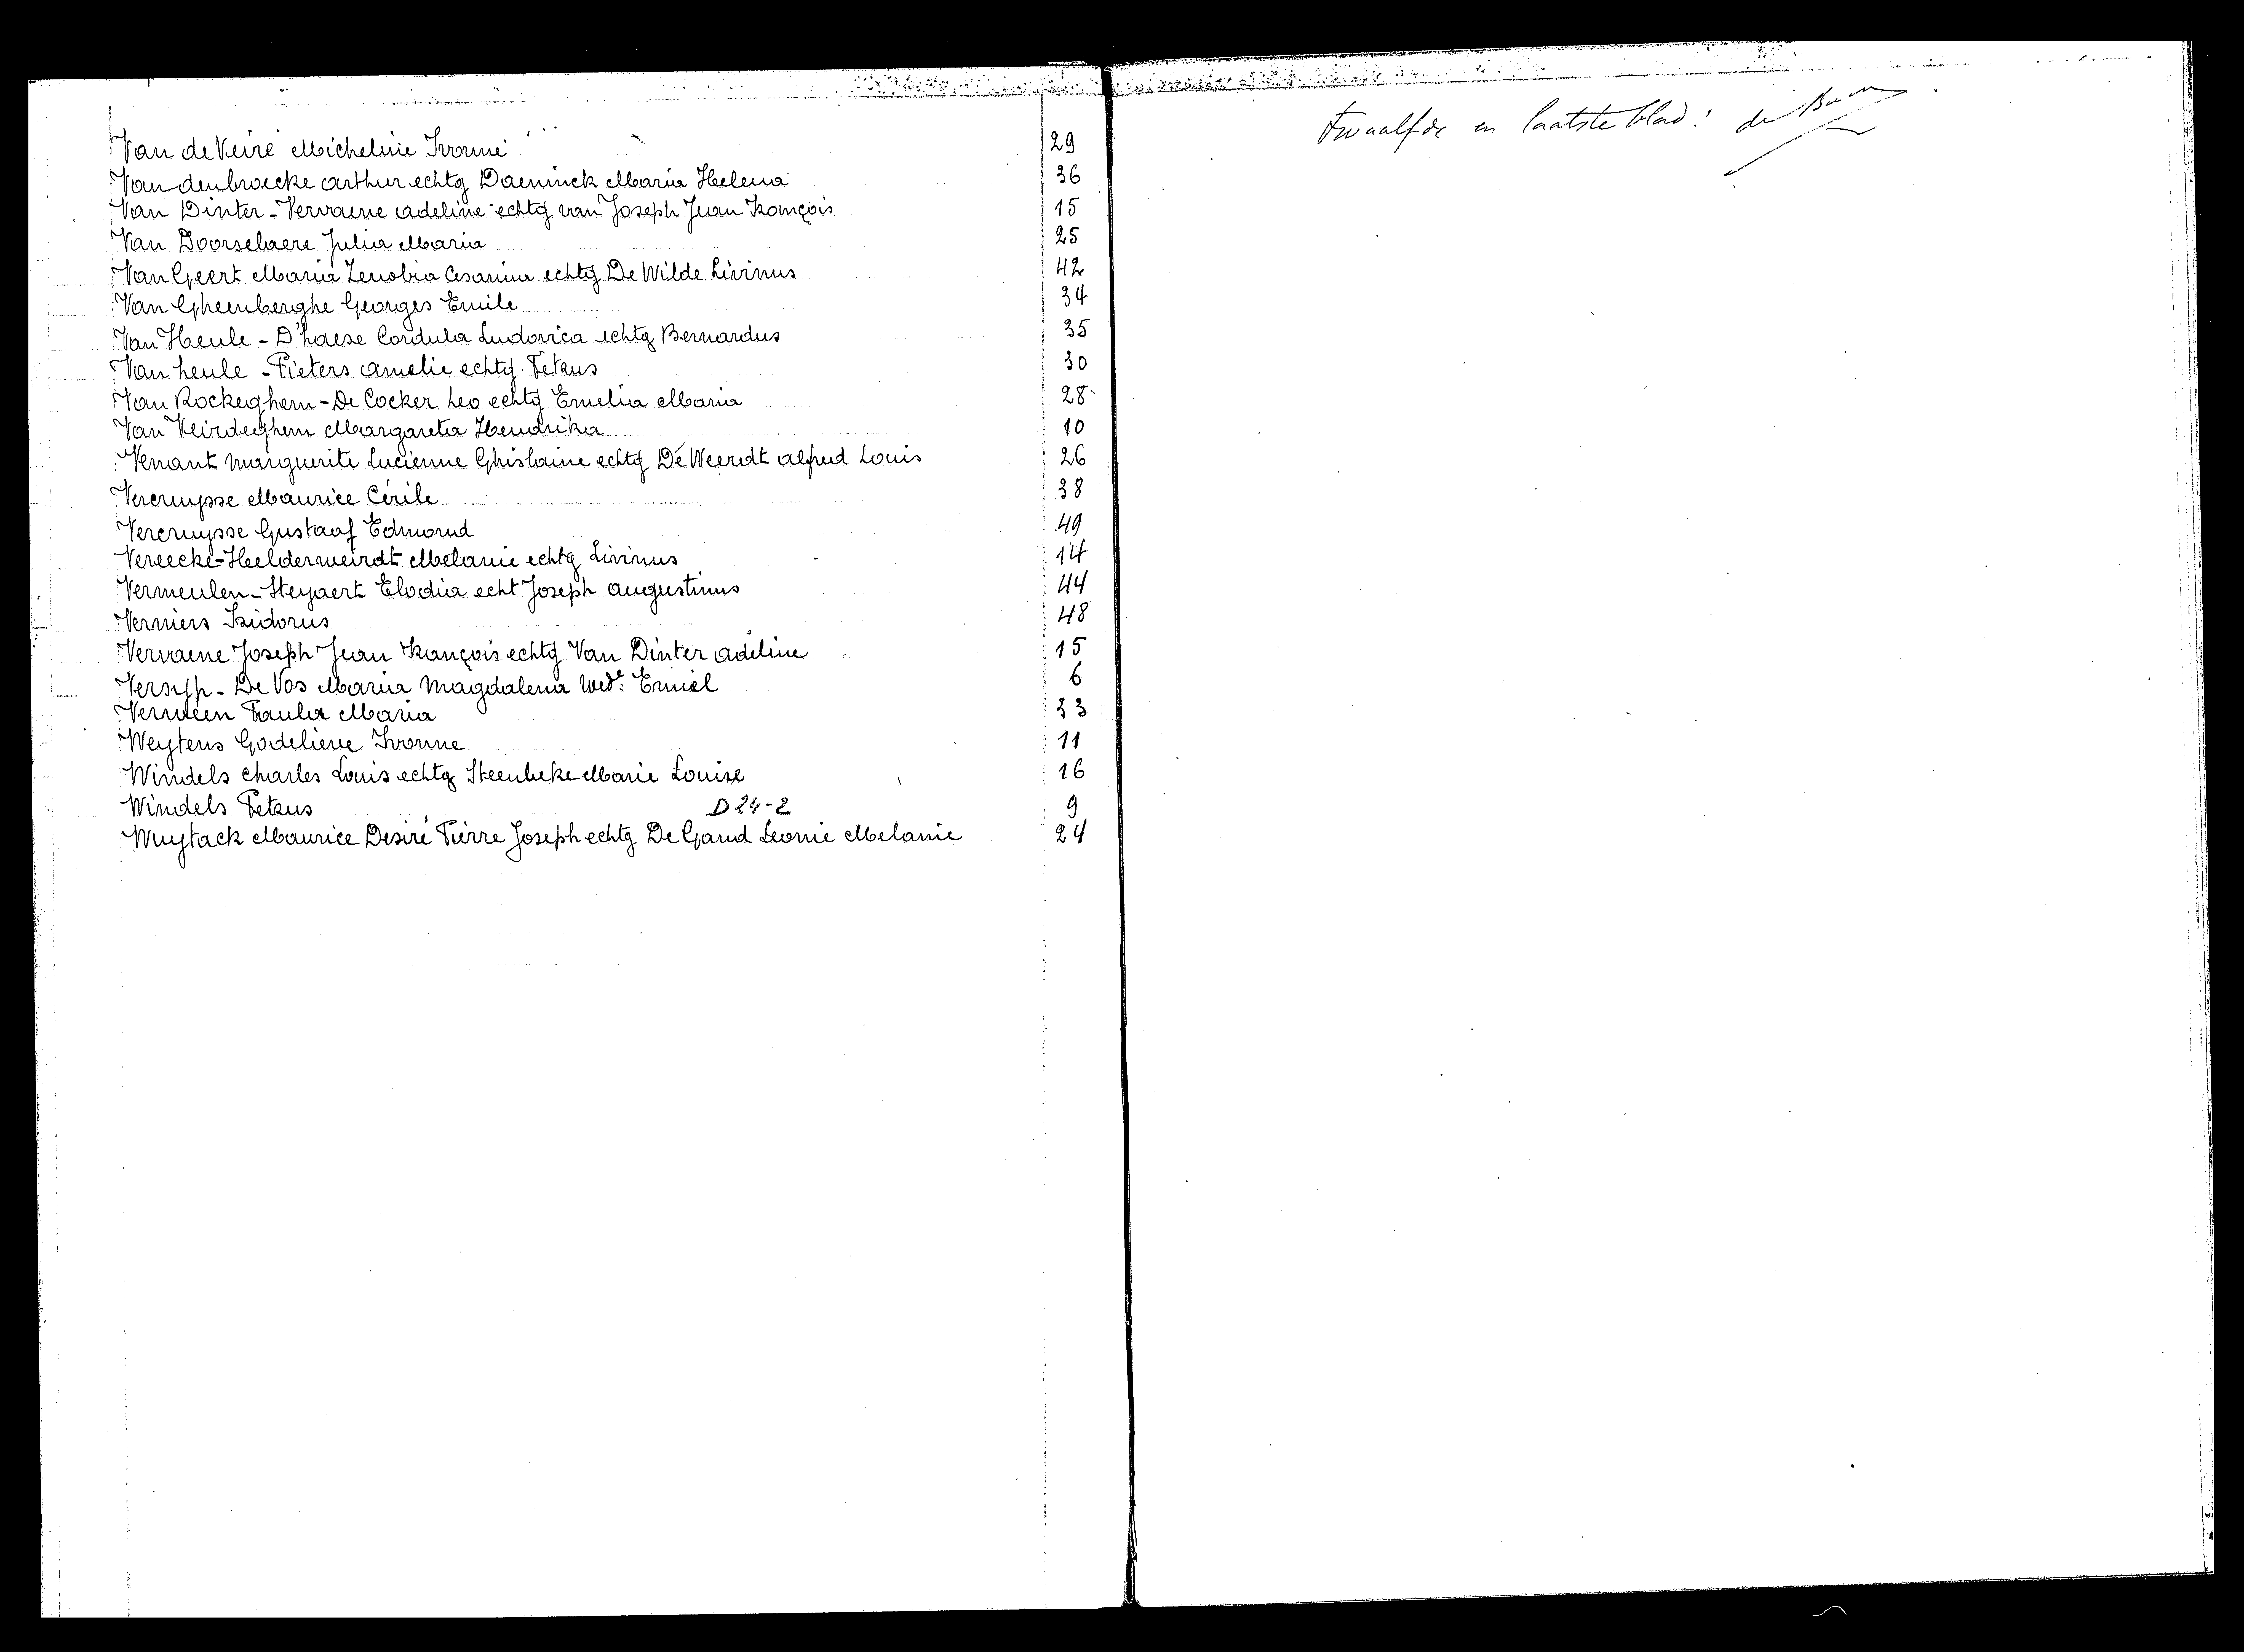 Van de Veire Micheline Ivonne 29
Van den broecke Arthur echtg Daeninck Maria Helena 36
Van Dinter - Vervaene Adeline echtg van Joseph Jean François 15
Van Doorselaere Julia Maria 25
Van Geert Maria Zenobia Cesarina echtg. De Wilde Livinus 42
Van Gheenberghe Georges Emile 34
Van Heule - D'haese Cordula Ludovica echtg Bernardus 35
Van heule - Pieters Amelie echtg. Petrus 30
Van Rockeghem - De Cocker Leo echtg Emelia Maria 28
Van Veirdeghem Margareta Hendrika 10
Venant Marguerite Lucienne Ghislaine echtg De Weerdt Alfred Louis 26
Vercruysse Maurice Cirile 38
Vercruysse Gustaaf Edmond 49
Vereecke - Heelderweirdt Melanie echtg Livinus 14
Vermeulen - Steyaert Elodia echt Joseph Augustinus 44
Verniers Isidorus 48
Vervaene Joseph Jean François echtg Van Dinter Adeline 15
Versyp - De Vos Maria Magdalena Wede: Emiel 6
Verween Paula Maria 33
Weytens Godelieve Ivonne 11
Windels Charles Louis echtg Steenbeke Marie Louise 16
Windels Petrus D 24-2 9
Wuytack Maurice Desiré Pierre Joseph echtg De Gand Leonie Melanie 24
Twaalfde en laatste blad: de